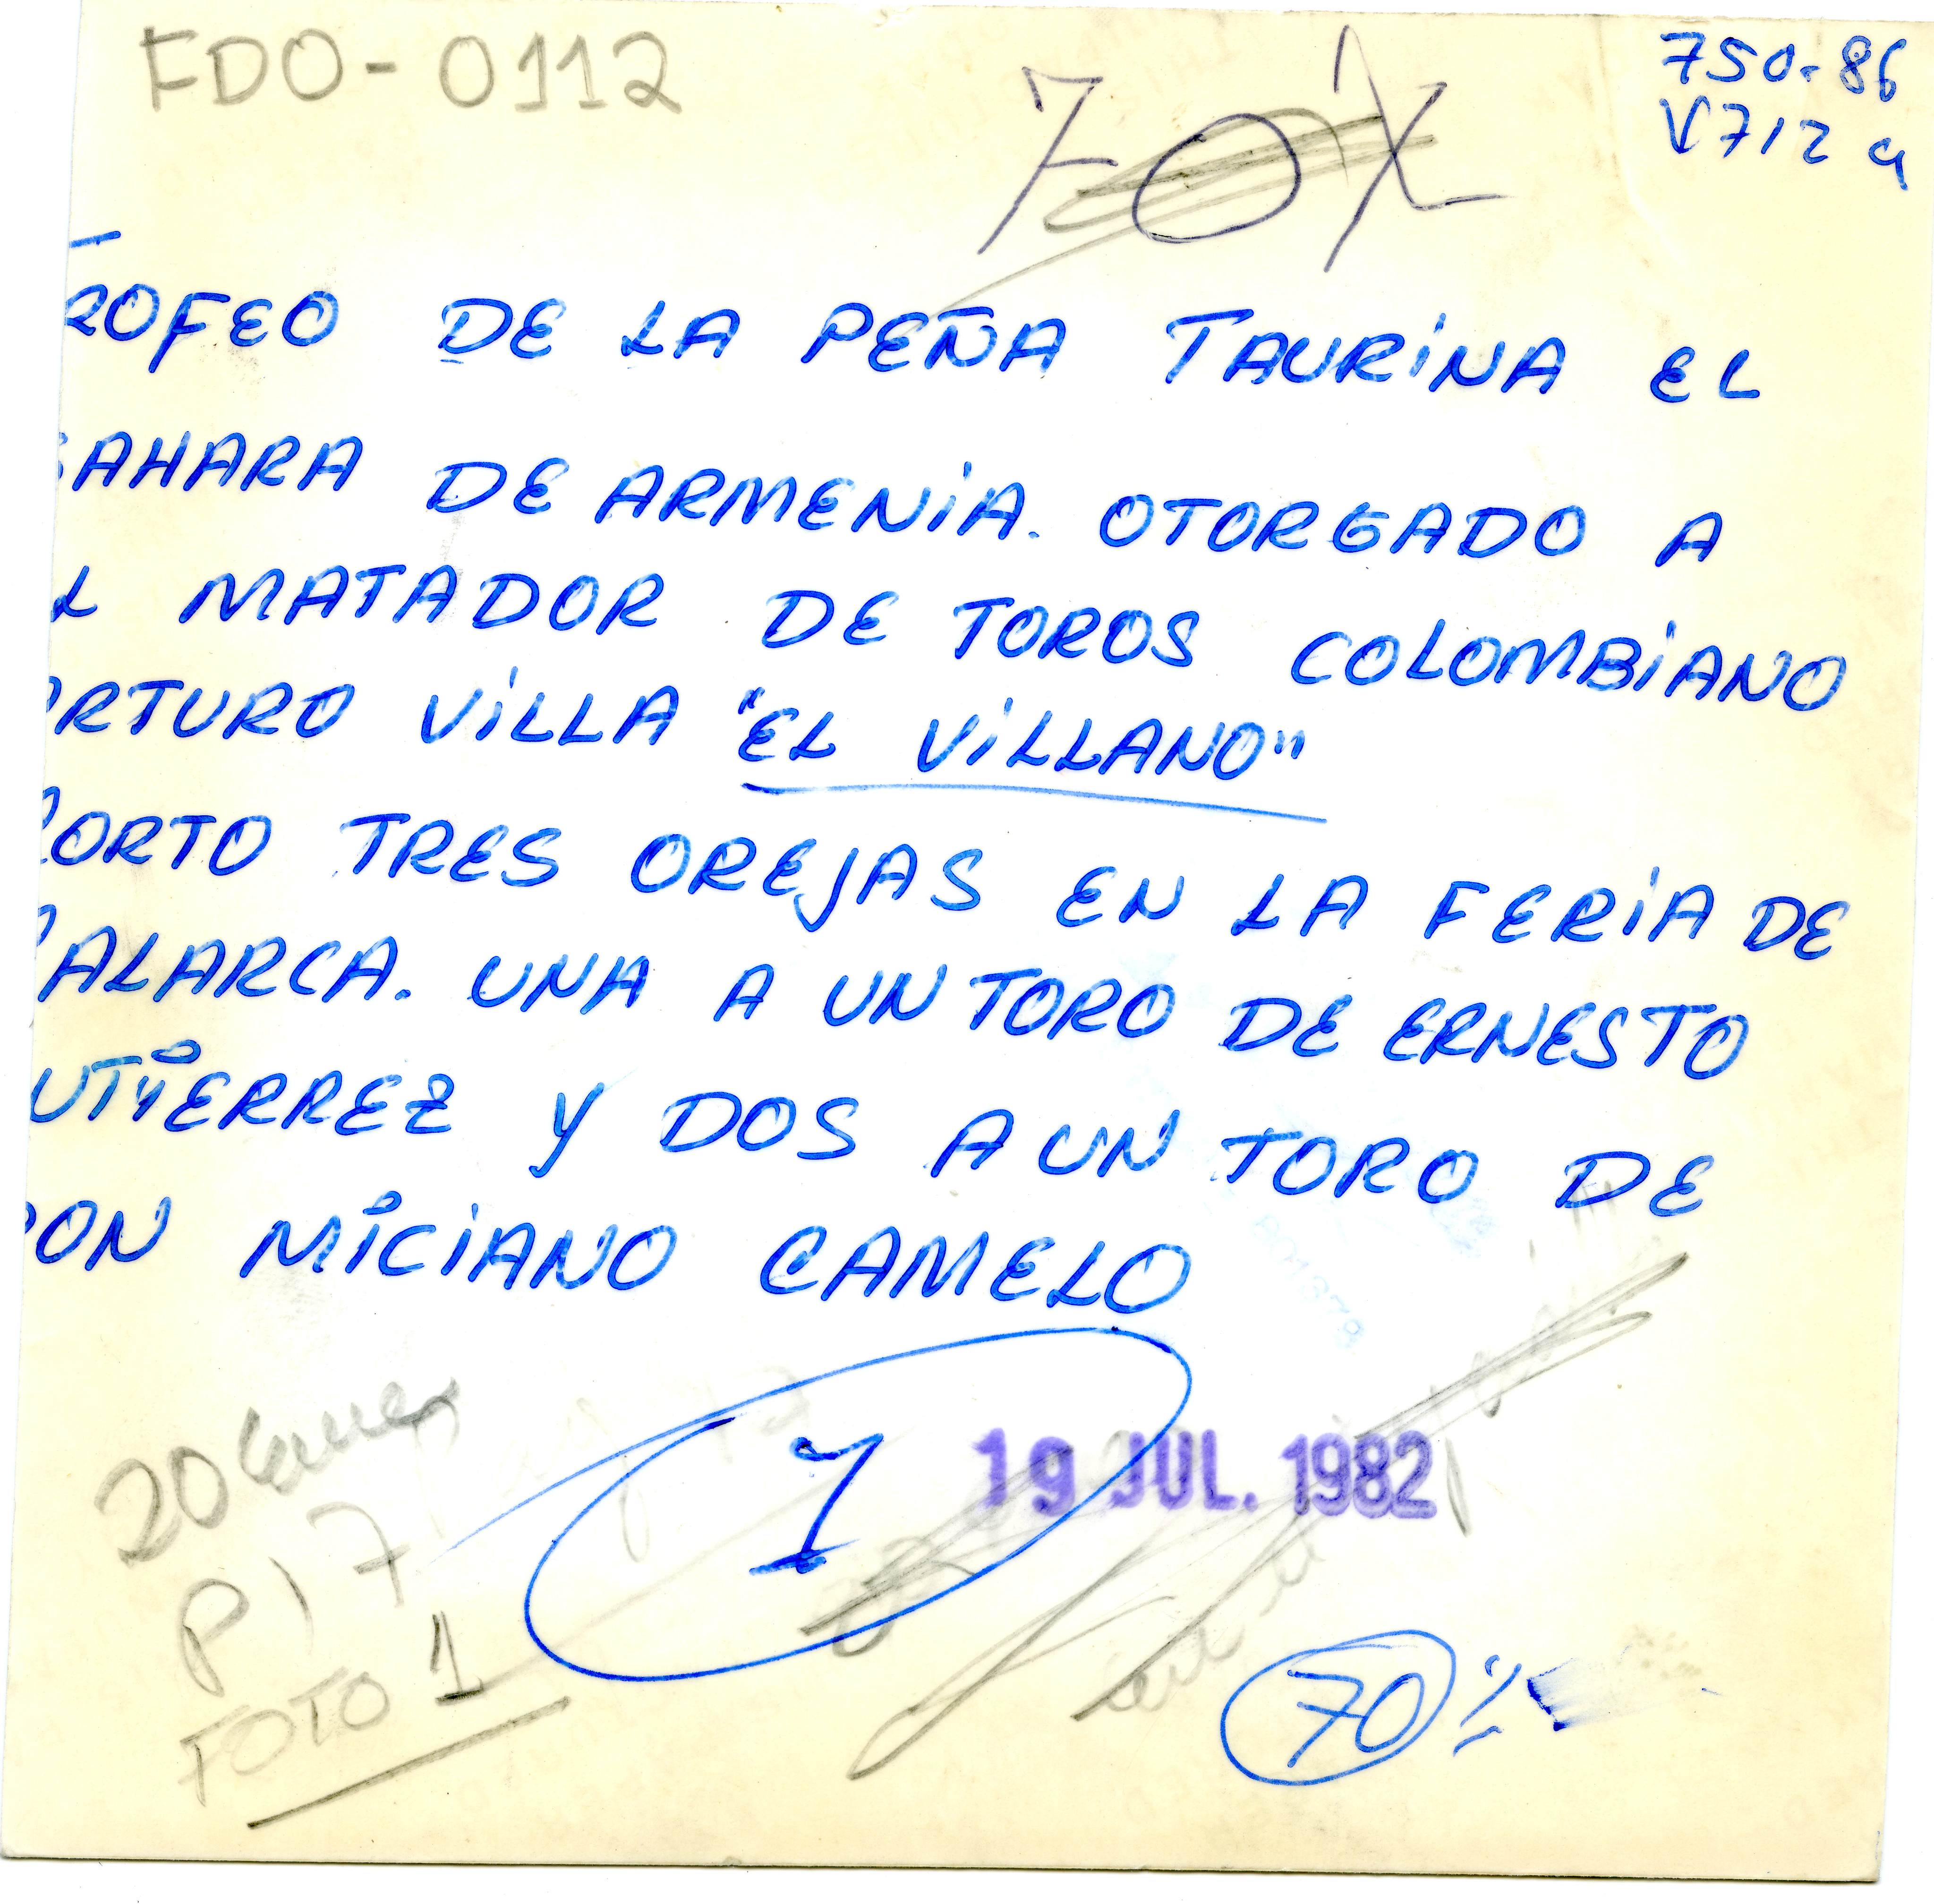 FDO-0112
750.86
V712a
ROFEO DE LA PEÑA TAURINA EL
SAHARA DE ARMENIA. OTORGADO A
L MATADOR DE TOROS COLOMBIANO
ARTURO VILLA "EL VILLANO"
CORTO TRES OREJAS EN LA FERIA DE
CALARCA. UNA A UN TORO DE ERNESTO
UTIERREZ Y DOS A UN TORO DE
DON MICIANO CAMELO
20
P 17
FOTO 1
1
19 JUL. 1982
70 %